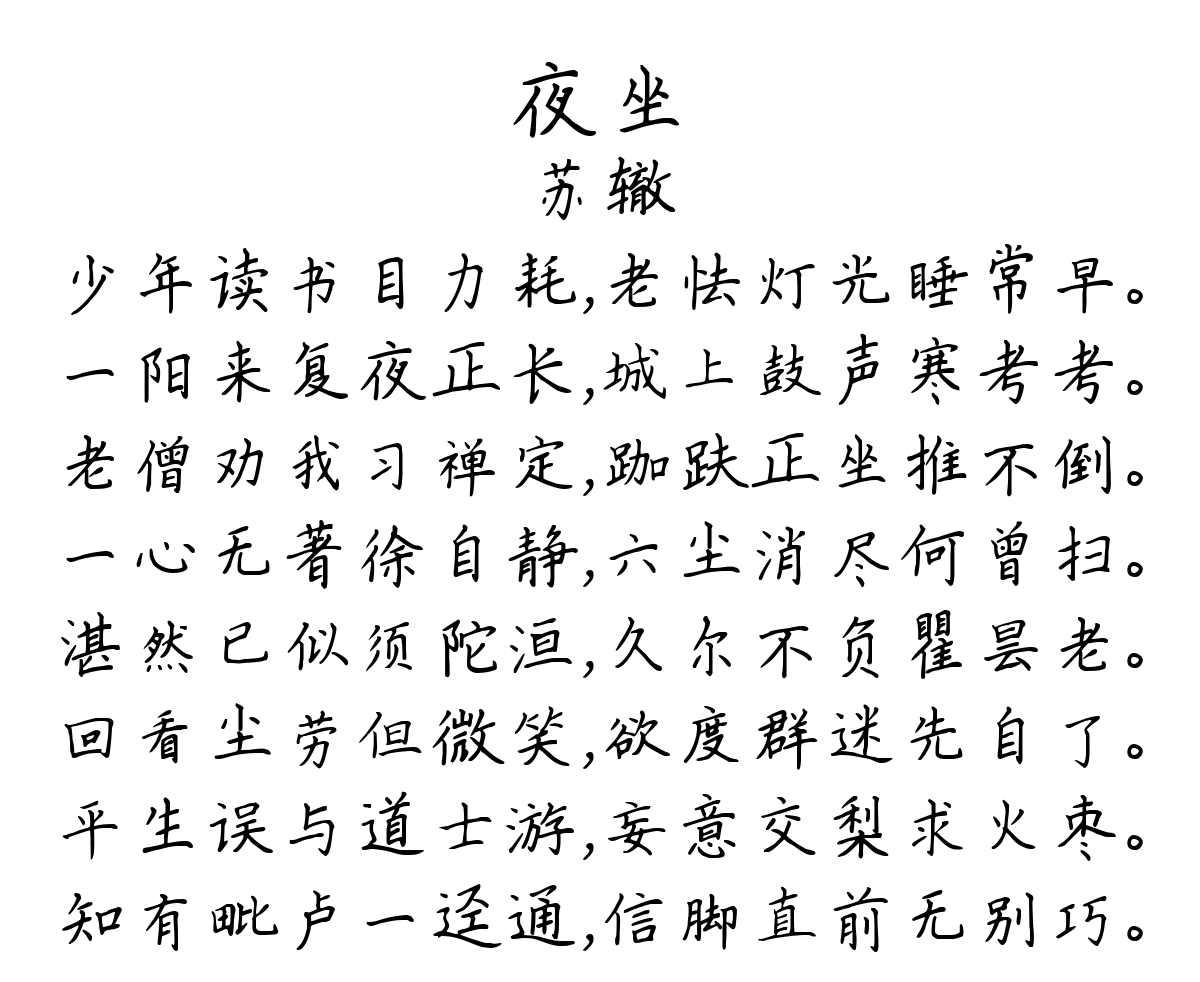 夜坐
苏辙
少年读书目力耗,老怯灯光睡常早。
一阳来复夜正长,城上鼓声寒考考。
老僧劝我习禅定,跏趺正坐推不倒。
一心无著徐自静,六尘消尽何曾扫。
湛然已似须陀洹,久尔不负瞿昙老。
回看尘劳但微笑,欲度群迷先自了。
平生误与道士游,妄意交梨求火枣。
知有毗卢一迳通,信脚直前无别巧。